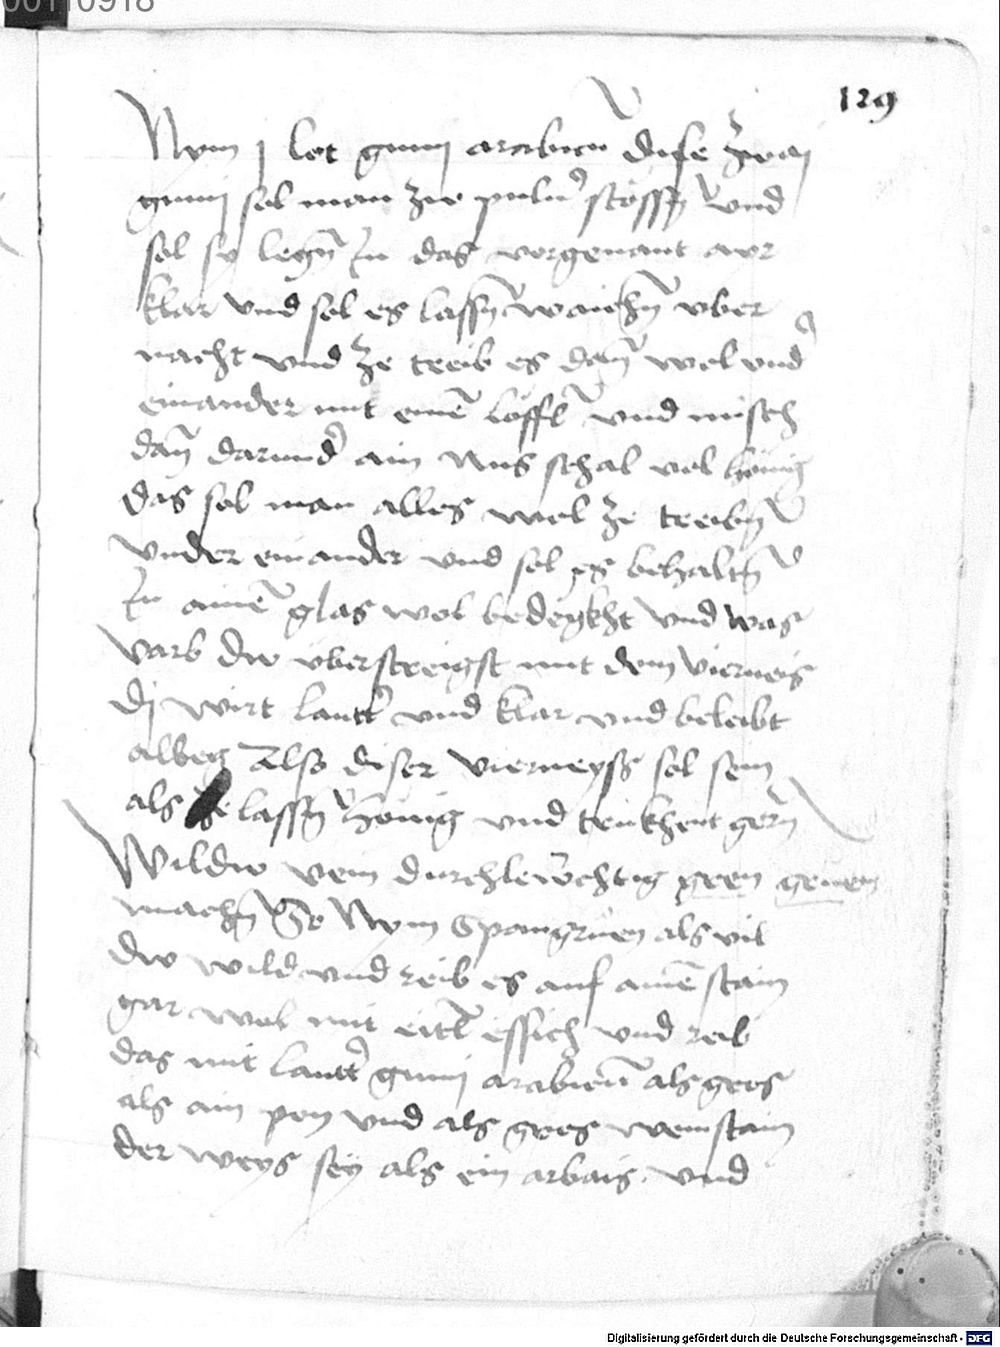 00110918
129
Nym j lot gumj arabicu dise zwaj
gumj sol man ze puluer stossn vnd
sol sy legn̄ in das vorgenant ayr
klar vnd sol es lassn̄ waichn̄ vber
nacht vnd ze treib es dan̄ wol vnd'
einander mit einē loffl vnd misch
dan̄ darund' ain nus schal vol honig
das sol man alles wol ze treibn̄
vnder einander vnd sol es behaltn̄
in ainē glas wol bedegkht vnd was
varb dw vberstreigst mit dem vierneis
dj wirt lautt' vnd klar vnd beleibt
albeg Also diser vierneyss sol sein
als lassn̄ honig vnd trukhent gern̄
Wildw vein durchlewchtig green
machn̄ So Nym Spangruen als vil
dw wild vnd reib es auf ainē stain
gar wol mit essich vnd reib
das mit lautt' gumj arabicu als gros
als ain pon vnd als gros weinstain
der weys sey als ein arbais vnd
Digitalisierung gefördert durch die Deutsche Forschungsgemeinschaft - DFG